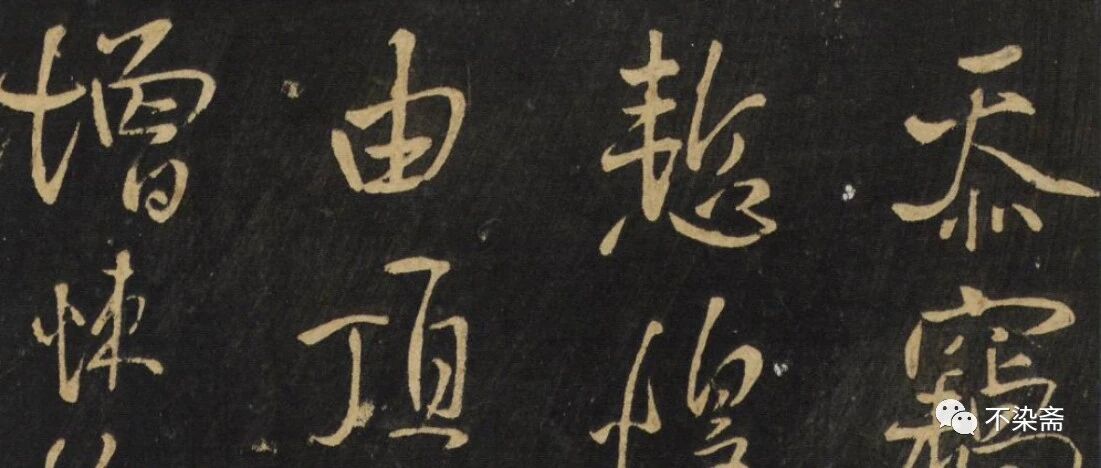 忝竊
慙惶
由頂
增悚
不染斋